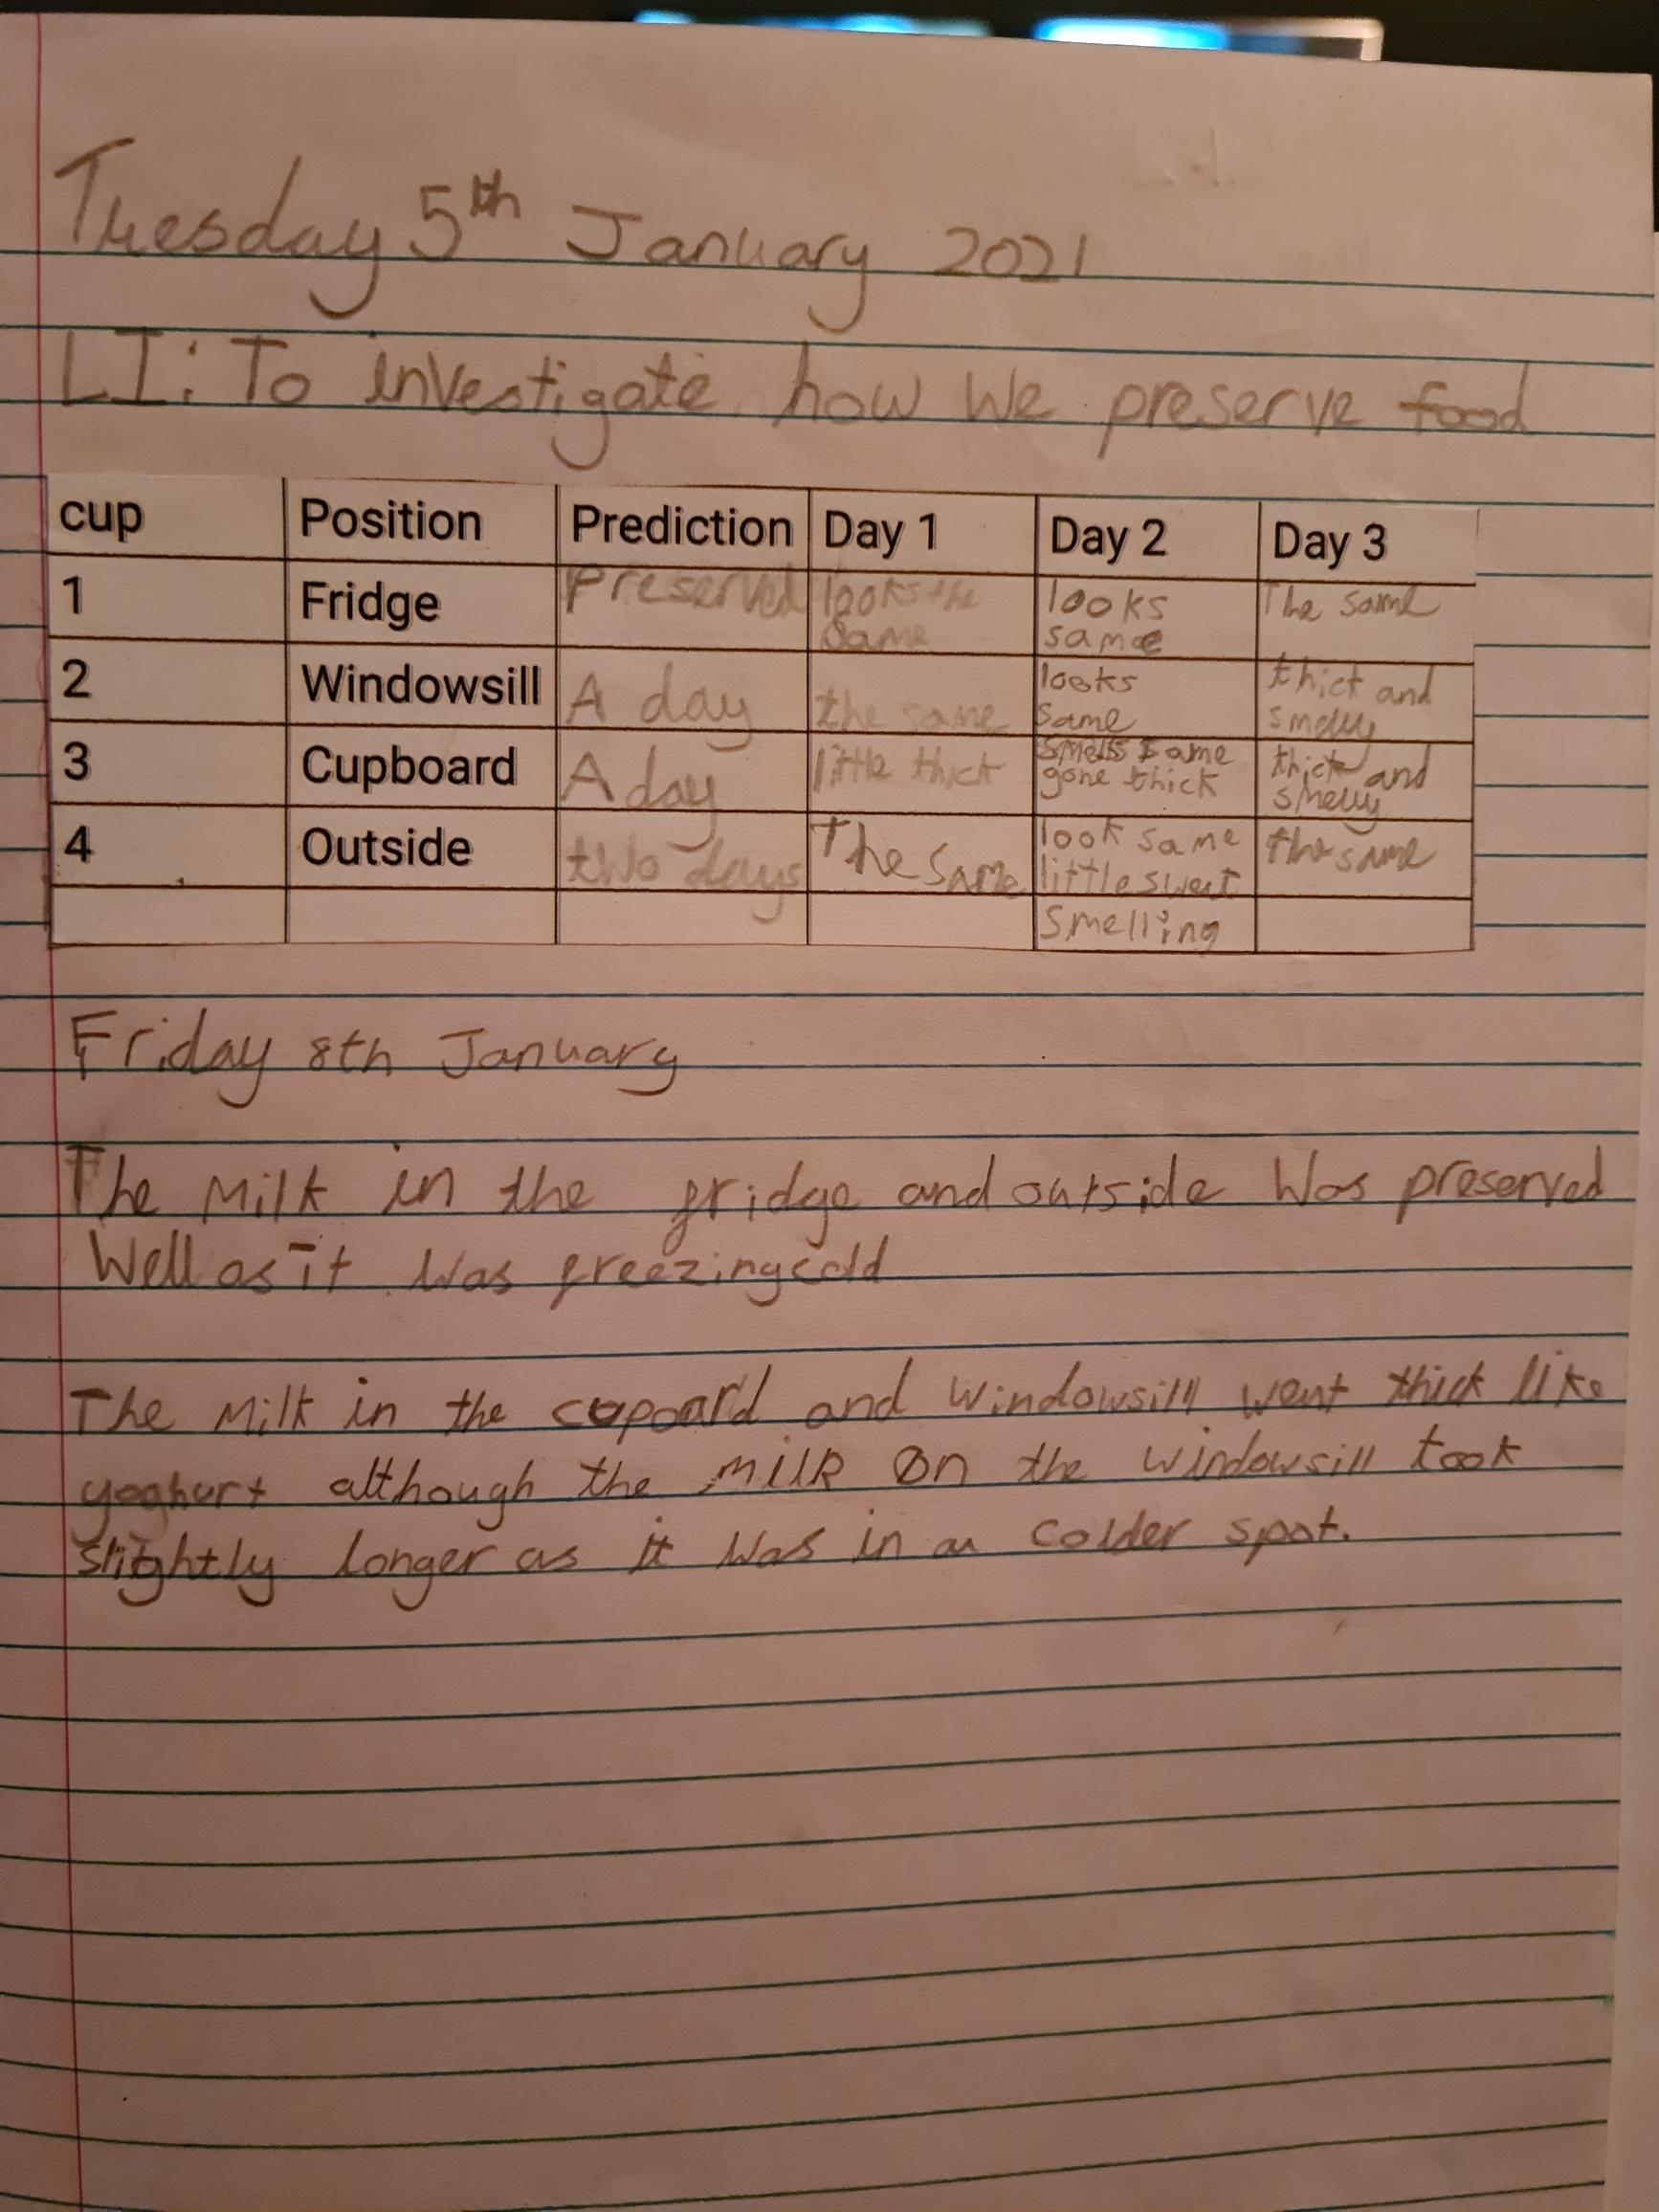 Tuesday 5th January 2021
LI: To investigate how we preserve food
cup Position Prediction Day 1 Day 2 Day 3
1 Fridge Preserved looks the same looks same The same
2 Windowsill A day the same looks same thick and smelly
3 Cupboard A day little thick smells same gone thick thick and smelly
4 Outside two days The same look same little sweet smelling the same
Friday 8th January
The Milk in the fridge and outside was preserved
Well as it was freezing cold
The Milk in the cupoard and windowsill went thick like
yoghurt although the milk on the windowsill took
slightly longer as it was in a colder spot.